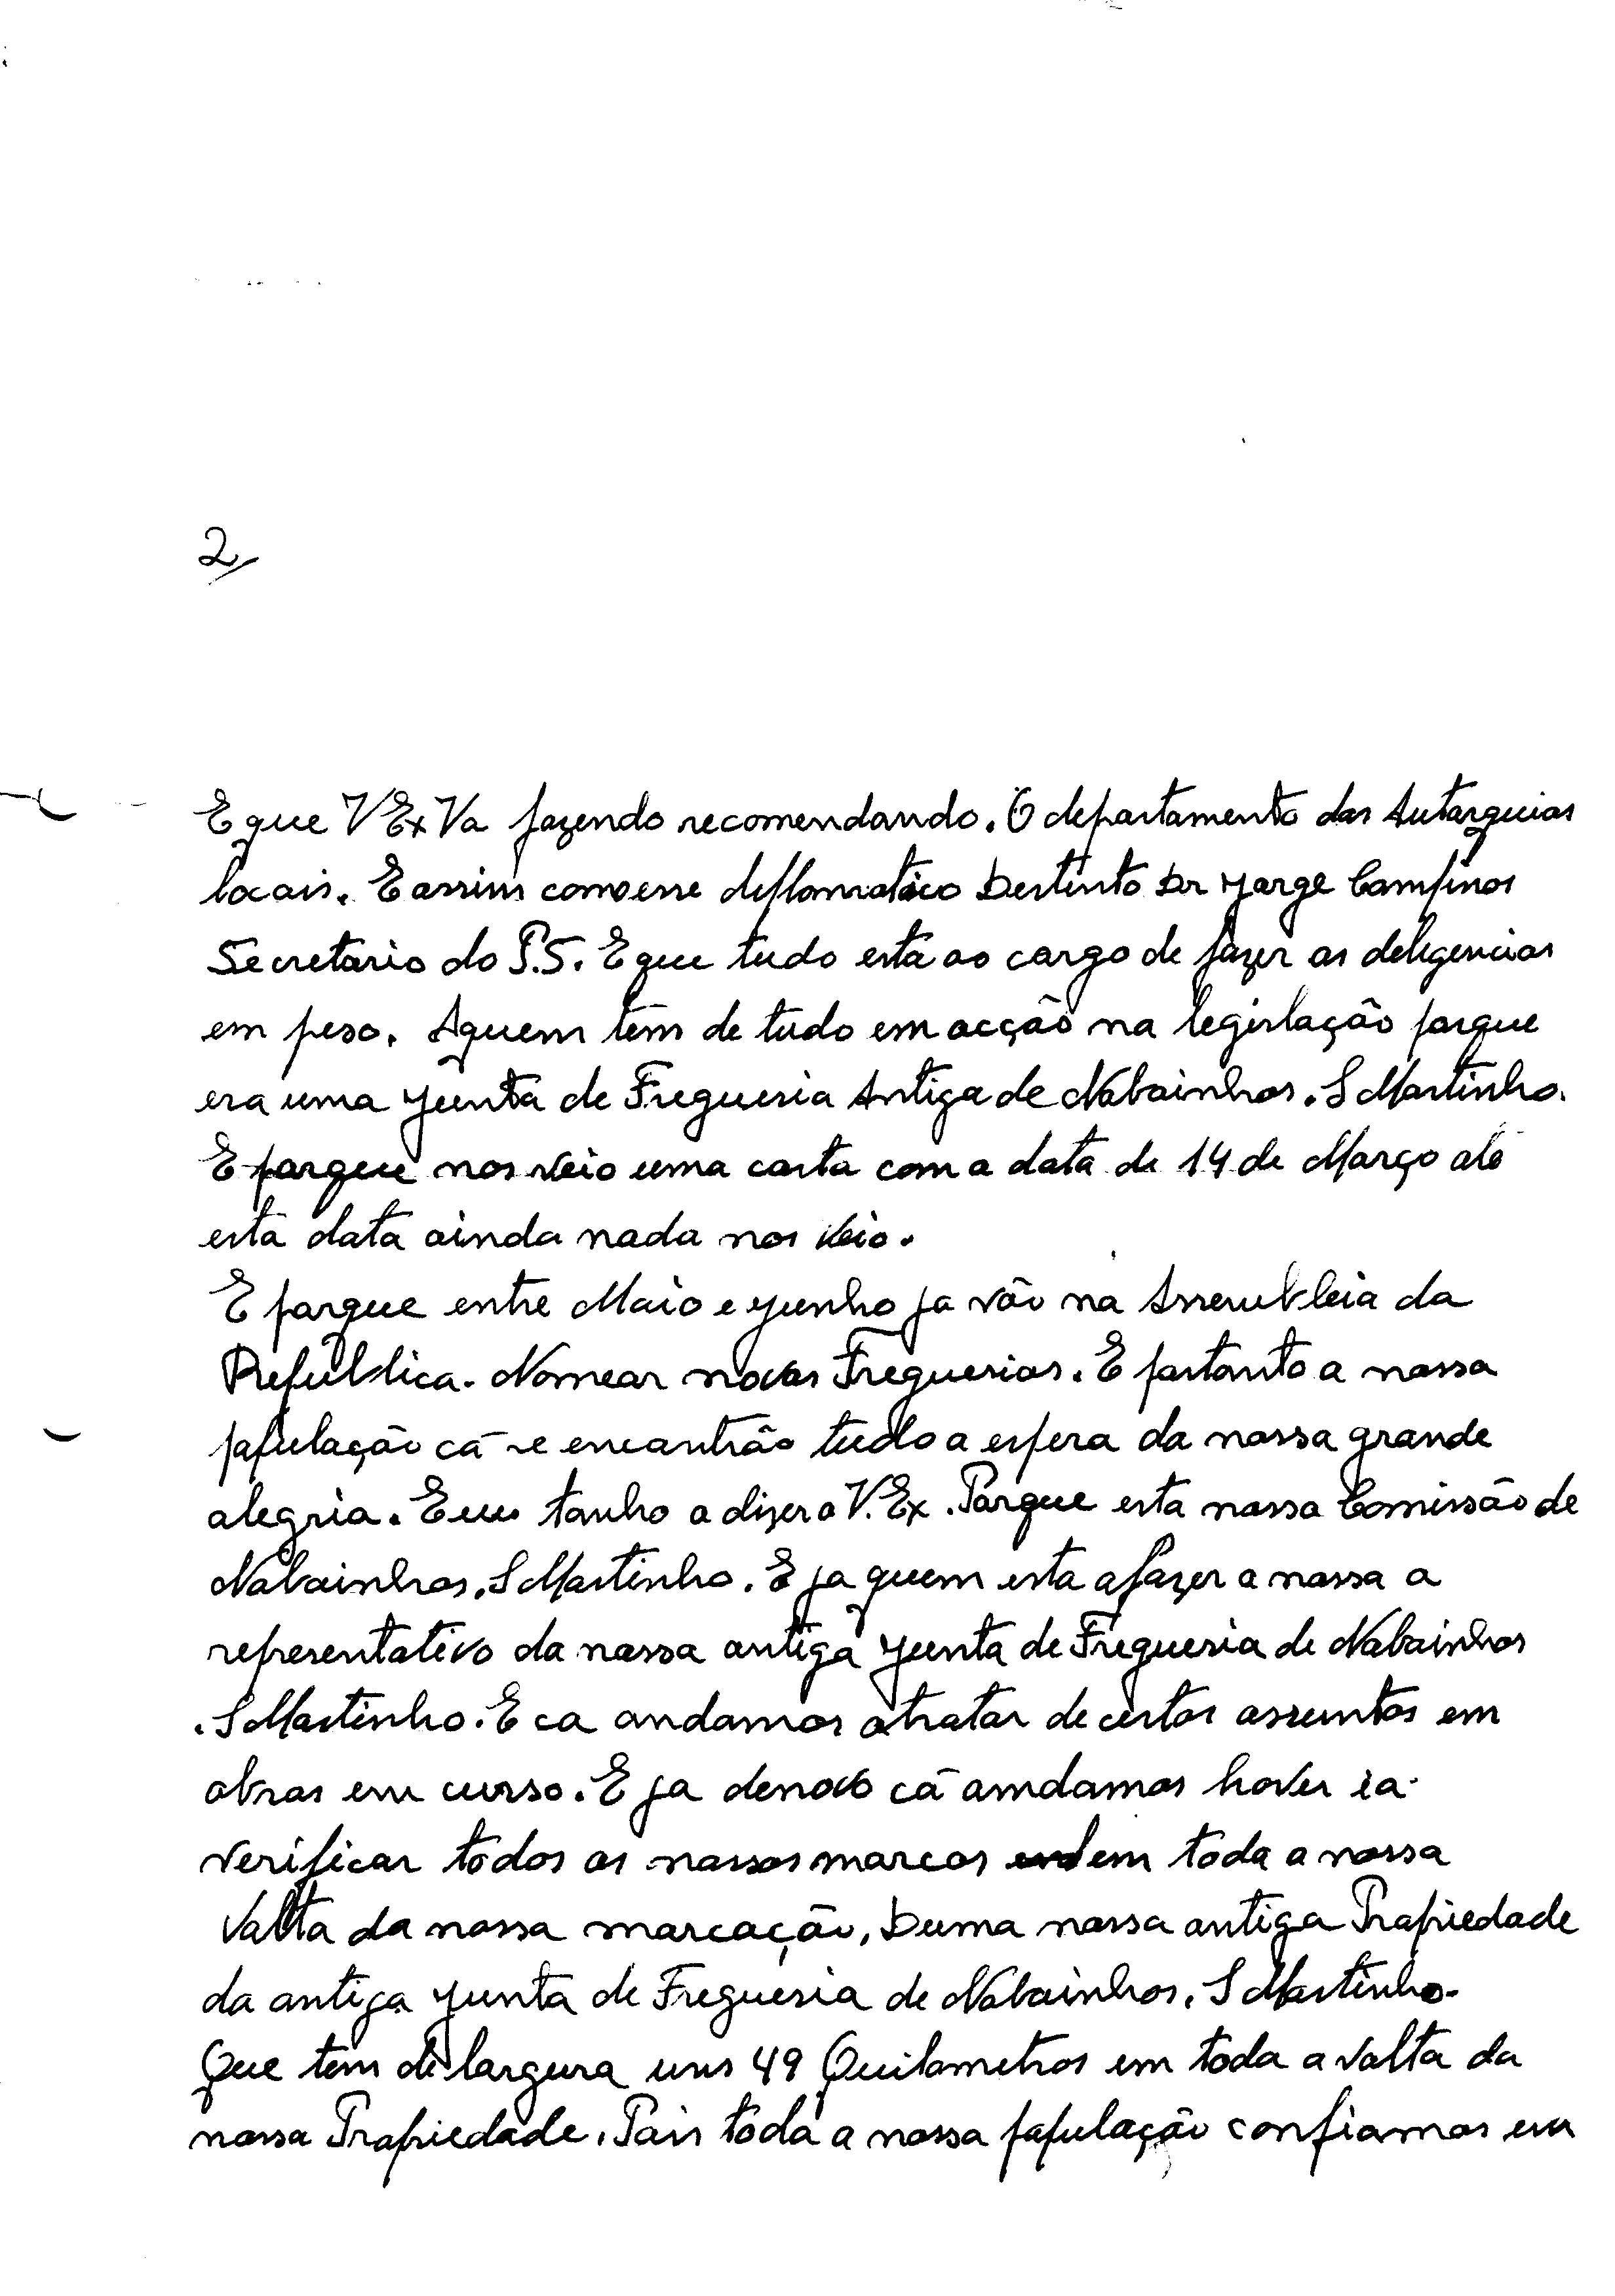 2/
E que V Ex Va fazendo recomendando. O departamento das Autarquias
locais. E assim como esse diplomatico Destinto Dr Jorge Campinos
Secretario do P.S. E que tudo está ao cargo de fazer as deligencias
em peso. Aquem têm de tudo em acção na legislação porque
era uma Junta de Freguesia Antiga de Nabainhos. S Martinho.
E porque nos veio uma carta com a data de 14 de Março até
esta data ainda nada nos veio.
E porque entre Maio e Junho ja vão na Assembleia da
Républica. Nomear novas Freguesias. E portanto a nossa
população cá se encontrão tudo a espera da nossa grande
alegria. E eu tanho a dizer a V. Ex. Porque esta nossa Comissão de
Nabainhos. S Martinho. E ja quem esta a fazer a nossa a
representativo da nossa antiga Junta de Freguesia de Nabainhos
. S Martinho. E ca andamos a tratar de certos assuntos em
obras em curso. E ja denovo cá amdamos haver ea
verificar todos os nossos marcos em toda a nossa
Volta da nossa marcação, Duma nossa antiga Propiedade
da antiga Junta de Freguesia de Nabainhos. S Martinho.
Que tem de largura uns 49 Quilometros em toda a volta da
nossa Propiedade. Pois toda a nossa população confiamos em